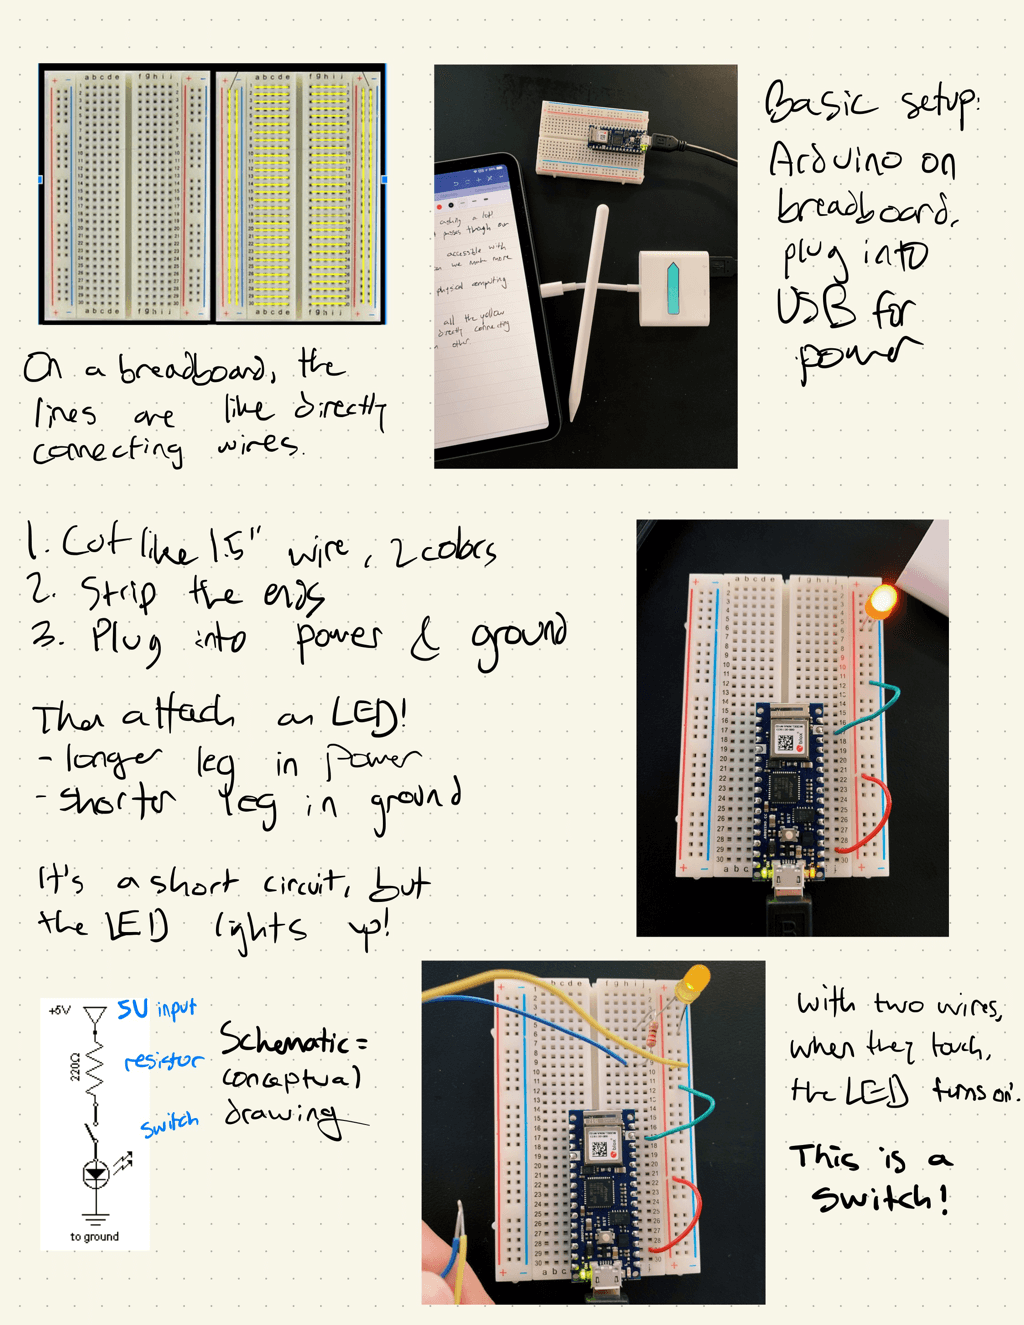 On a breadboard, the
lines are like directly
connecting wires.
Basic setup:
Arduino on
breadboard,
plug into
USB for
power
all the yellow
directly connecting
other
accessible with
physical computing
1. Cut like 1.5" wire, 2 colors
2. Strip the ends
3. Plug into power & ground
Then attach an LED!
- longer leg in power
- shorter leg in ground
It's a short circuit, but
the LED lights up!
+5V
5V input
220Ω
resistor
switch
to ground
Schematic =
conceptual
drawing
With two wires,
when they touch,
the LED turns on.
This is a
switch!